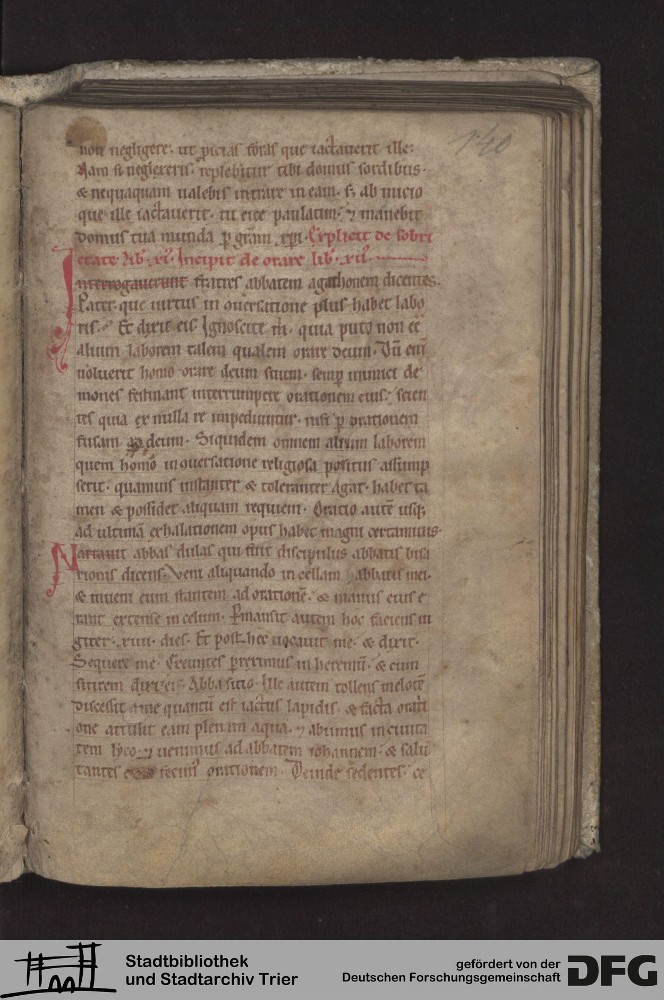 140
non negligere· ut p̄icias sord̄es que iactauerit ille·
Nam si neglexeris· replebitur tibi domus sordibus·
& nequaquam ualebis intrare in eam· s; ab inicio
que ille iactauerit· tu eice paulatim· ⁊ manebit
domus tua munda p̄ grām xp̄i· Explicit de sobri
etate lib· xi· Incipit de orare lib· xii·
Interrogauerunt fratres abbatem agathonem dicentes·
Pater· que uirtus in ꝯuersatione plus habet labo
ris· Et dixit eis Ignoscite m̄· quia puto non eē
alium laborem talem qualem orare deum· Cū enī
uoluerit homo orare deum suum· semp̄ inimici de
mones festinant interrumpere orationem eius· scien
tes quia ex nulla re impediuntur· nisi p̄ orationem
fusam ad deum· Siquidem omnem alium laborem
quem homo in ꝯuersatione religiosa positus assump
serit· quamuis instanter & toleranter agat· habet ta
men & possidet aliquam requiem· Oratio autē usq;
ad ultimā exhalationem opus habet magni certaminis·
Narrauit abbas dulas qui fuit discipulus abbatis bisa
rionis dicens· Veni aliquando in cellam abbatis mei·
& inueni eum stantem ad orationē· & manus eius e
rant extense in celum· Pmansit autem hoc faciens iu
giter· xiiii· dies· Et post hec uocauit me· & dixit·
Sequere me· Exeuntes p̄reximus in heremū· & cum
sitirem dixi ei· Abba sitio· Ille autem tollens melotē
discessit a me quantū est iactus lapidis· & facta orati
one attulit eam plenam aqua· ⁊ abiimus in ciuita
tem lyco· ⁊ uenimus ad abbatem iohannem· & salu
tantes fecim᷒ orationem· Deinde sedentes· ce
Stadtbibliothek
und Stadtarchiv Trier
gefördert von der
Deutschen Forschungsgemeinschaft
DFG